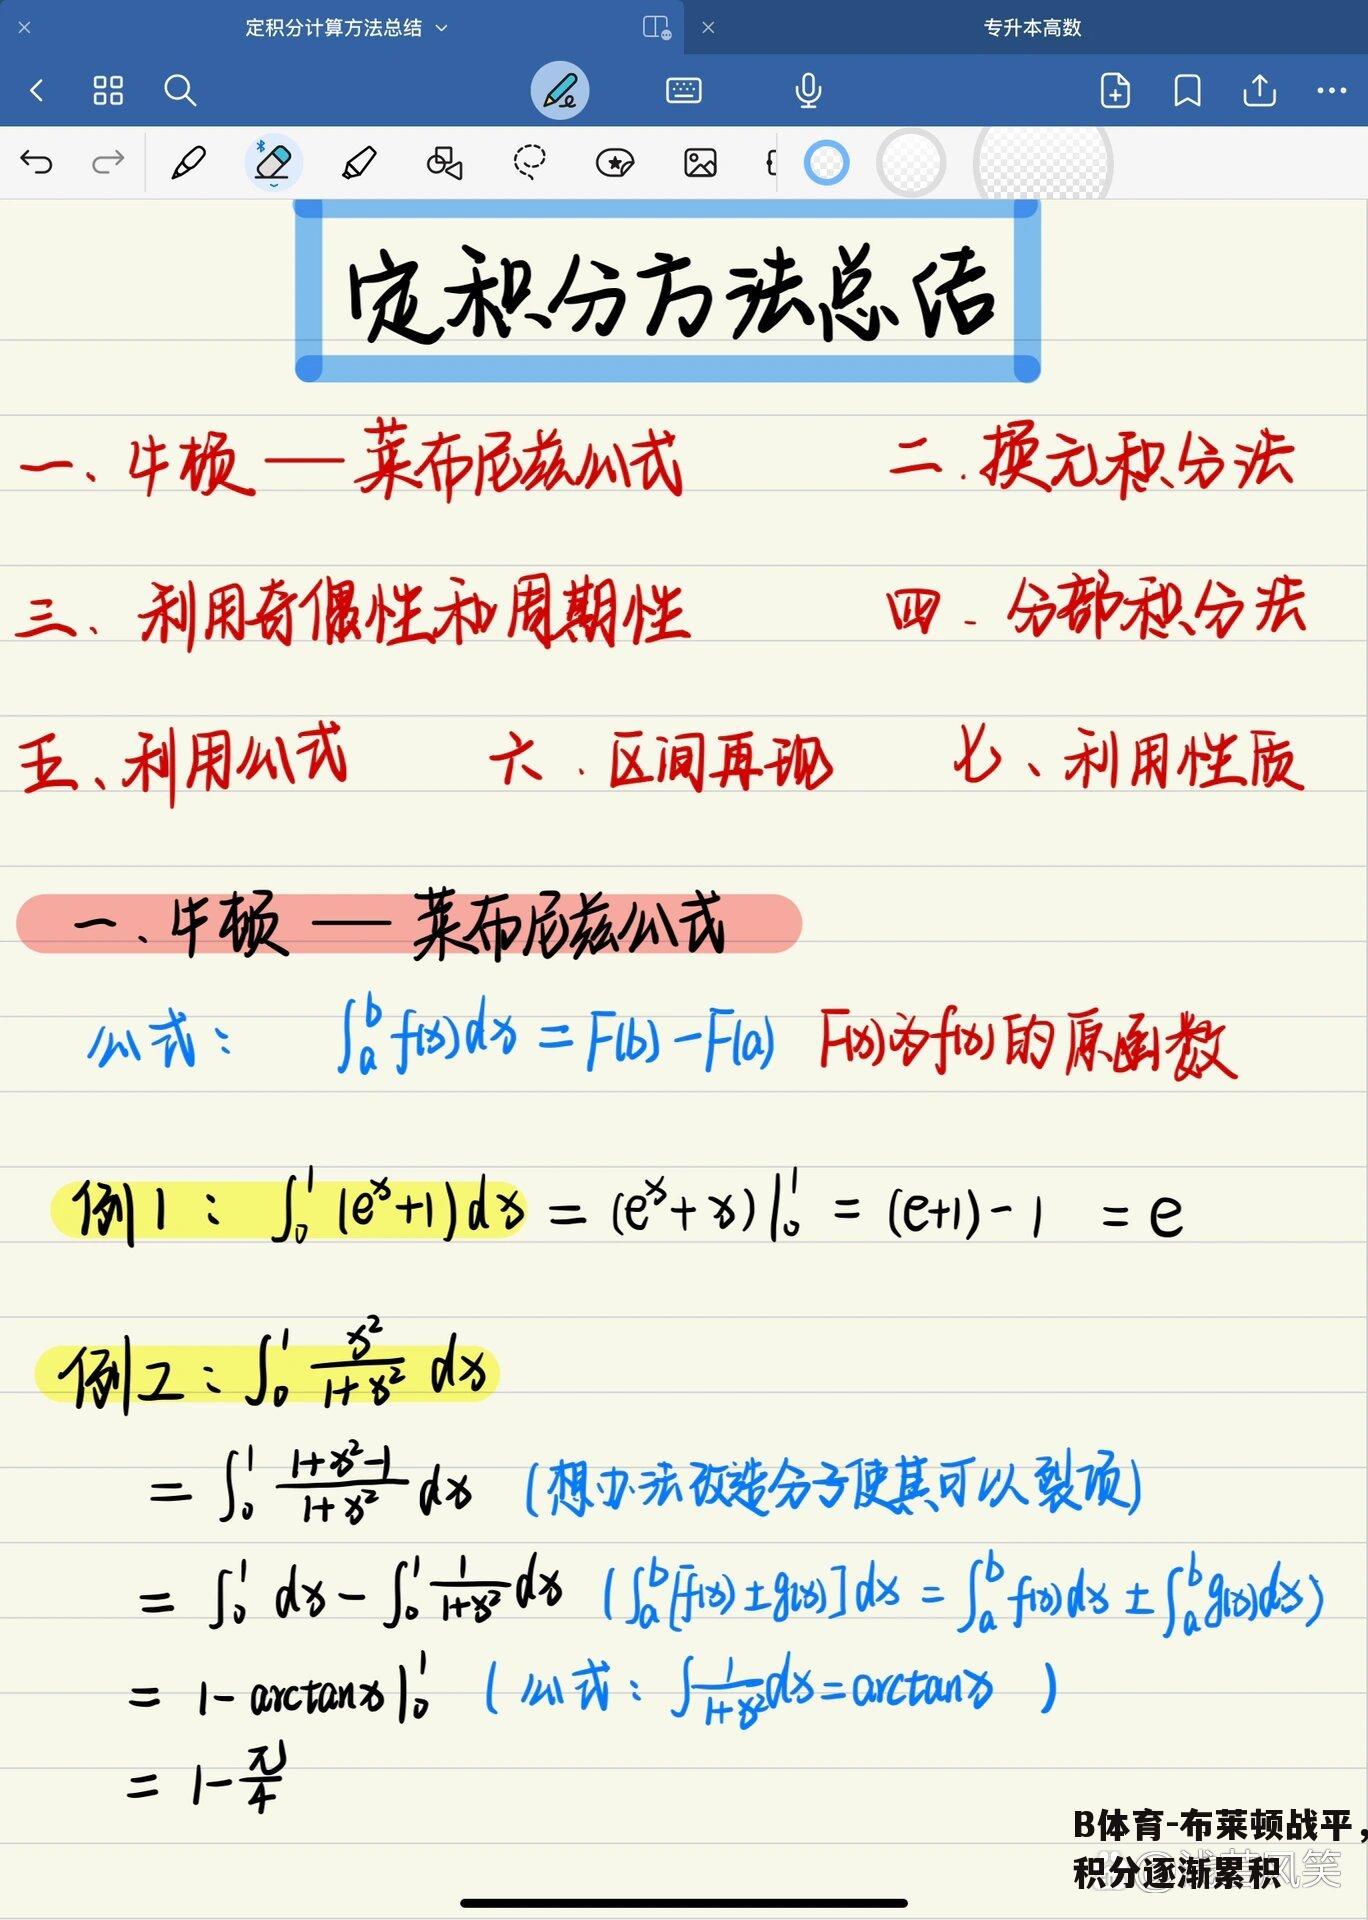 定积分计算方法总结
专升本高数
定积分方法总结
一、牛顿——莱布尼兹公式 二.换元积分法
三、利用奇偶性和周期性 四.分部积分法
五、利用公式 六.区间再现 七、利用性质
一、牛顿——莱布尼兹公式
公式: ∫ₐᵇ f(x)dx = F(b) - F(a) F(x)为f(x)的原函数
例1: ∫₀¹ (eˣ+1)dx = (eˣ+x)|₀¹ = (e+1)-1 = e
例2: ∫₀¹ x²/(1+x²) dx
= ∫₀¹ (1+x²-1)/(1+x²) dx (想办法改造分子使其可以裂项)
= ∫₀¹ dx - ∫₀¹ 1/(1+x²) dx (∫ₐᵇ[f(x)±g(x)]dx = ∫ₐᵇ f(x)dx ± ∫ₐᵇ g(x)dx)
= 1 - arctanx|₀¹ (公式: ∫ 1/(1+x²) dx = arctanx )
= 1 - π/4
B体育-布莱顿战平,
积分逐渐累积